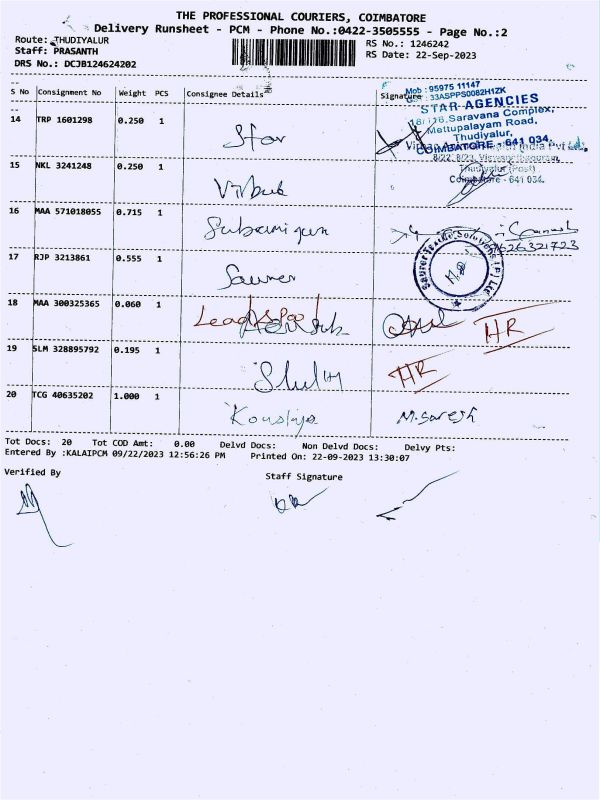 THE PROFESSIONAL COURIERS, COIMBATORE
Delivery Runsheet - PCM - Phone No.:0422-3505555 - Page No.:2
Route: THUDIYALUR
RS No.: 1246242
Staff: PRASANTH
RS Date: 22-Sep-2023
DRS No.: DCJB124624202
S No Consignment No Weight PCS Consignee Details Signature
Mob : 95975 11147
33ASPPS0082H1ZK
STAR AGENCIES
Saravana Complex,
Mettupalayam Road,
Thudiyalur,
COIMBATORE - 641 034.
14 TRP 1601298 0.250 1 Star
India Pvt Ltd.
Thudiyalur (Post)
Coimbatore - 641 034.
15 NKL 3241248 0.250 1
16 MAA 571018055 0.715 1
9626321723
17 RJP 3213861 0.555 1 Saurer
18 MAA 300325365 0.060 1 HR
19 SLM 328895792 0.195 1 HR
20 TCG 40635202 1.000 1 M. Suresh
Tot Docs: 20 Tot COD Amt: 0.00 Delvd Docs: Non Delvd Docs: Delvy Pts:
Entered By :KALAIPCM 09/22/2023 12:56:26 PM Printed On: 22-09-2023 13:30:07
Verified By
Staff Signature